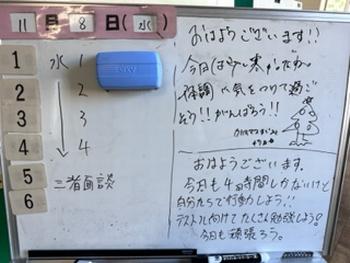 11月8日(水)
1 水1
2 2
3 3
4 4
5 三者面談
6
おはようございます!!
今日は少し寒いですね。
体調に気をつけて過ご
そう!!がんばろう!!
おはようございます。
今日も4時間しかないけど
自分たちで行動しよう!!
テストに向けてたくさん勉強しよう!
今日も頑張ろう。